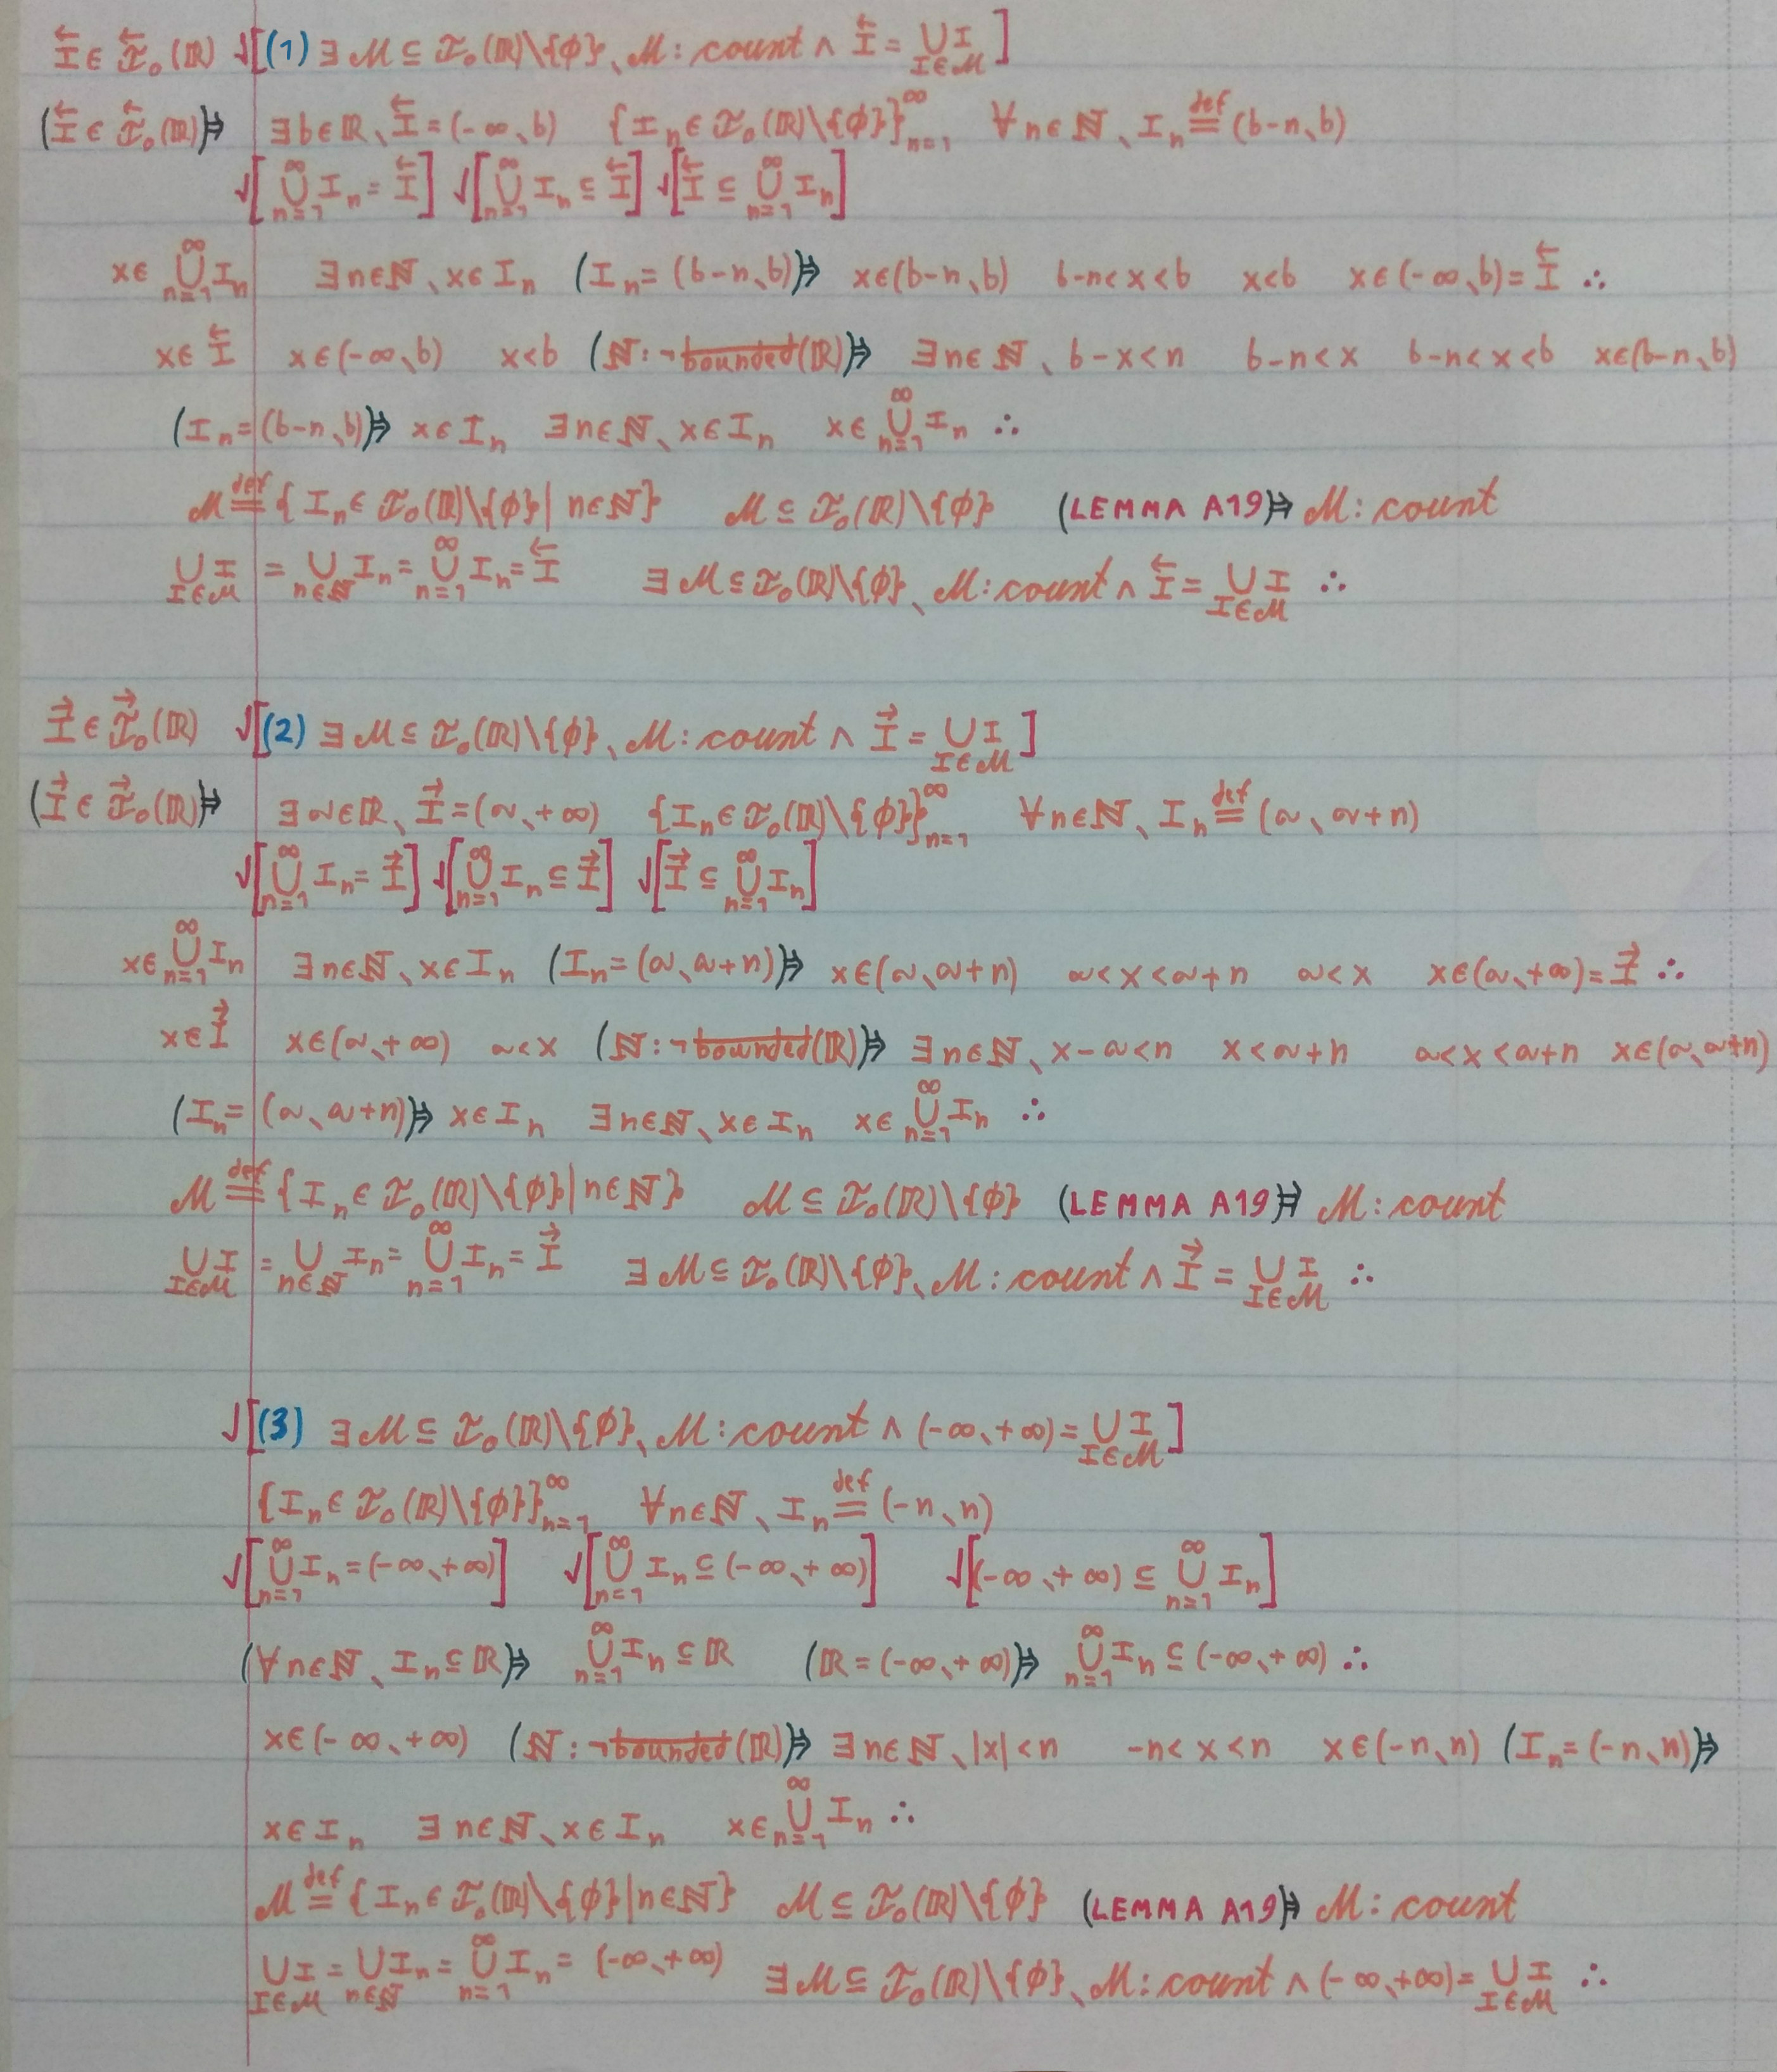 I⃖ ∈ 𝓘⃖₀(ℝ) √[(1) ∃ℳ ⊆ 𝓘₀(ℝ)\{ϕ}、ℳ: count ∧ I⃖ = ⋃_{I∈ℳ} I ]
(I⃖ ∈ 𝓘⃖₀(ℝ))⇒ ∃b∈ℝ、I⃖ = (-∞、b) {Iₙ ∈ 𝓘₀(ℝ)\{ϕ}}_{n=1}^∞ ∀n∈ℕ、Iₙ ≝ (b-n、b)
√[⋃_{n=1}^∞ Iₙ = I⃖] √[⋃_{n=1}^∞ Iₙ ⊆ I⃖] √[I⃖ ⊆ ⋃_{n=1}^∞ Iₙ]
x∈ ⋃_{n=1}^∞ Iₙ ∃n∈ℕ、x∈Iₙ (Iₙ = (b-n、b))⇒ x∈(b-n、b) b-n<x<b x<b x∈(-∞、b) = I⃖ ∴
x∈I⃖ x∈(-∞、b) x<b (ℕ: ¬b̅o̅u̅n̅d̅e̅d̅(ℝ))⇒ ∃n∈ℕ、b-x<n b-n<x b-n<x<b x∈(b-n、b)
(Iₙ = (b-n、b))⇒ x∈Iₙ ∃n∈ℕ、x∈Iₙ x∈ ⋃_{n=1}^∞ Iₙ ∴
ℳ ≝ {Iₙ ∈ 𝓘₀(ℝ)\{ϕ} | n∈ℕ} ℳ ⊆ 𝓘₀(ℝ)\{ϕ} (LEMMA A19)⇒ ℳ: count
⋃_{I∈ℳ} I = ⋃_{n∈ℕ} Iₙ = ⋃_{n=1}^∞ Iₙ = I⃖ ∃ℳ ⊆ 𝓘₀(ℝ)\{ϕ}、ℳ: count ∧ I⃖ = ⋃_{I∈ℳ} I ∴
I⃗ ∈ 𝓘⃗₀(ℝ) √[(2) ∃ℳ ⊆ 𝓘₀(ℝ)\{ϕ}、ℳ: count ∧ I⃗ = ⋃_{I∈ℳ} I ]
(I⃗ ∈ 𝓘⃗₀(ℝ))⇒ ∃a∈ℝ、I⃗ = (a、+∞) {Iₙ ∈ 𝓘₀(ℝ)\{ϕ}}_{n=1}^∞ ∀n∈ℕ、Iₙ ≝ (a、a+n)
√[⋃_{n=1}^∞ Iₙ = I⃗] √[⋃_{n=1}^∞ Iₙ ⊆ I⃗] √[I⃗ ⊆ ⋃_{n=1}^∞ Iₙ]
x∈ ⋃_{n=1}^∞ Iₙ ∃n∈ℕ、x∈Iₙ (Iₙ = (a、a+n))⇒ x∈(a、a+n) a<x<a+n a<x x∈(a、+∞) = I⃗ ∴
x∈I⃗ x∈(a、+∞) a<x (ℕ: ¬b̅o̅u̅n̅d̅e̅d̅(ℝ))⇒ ∃n∈ℕ、x-a<n x<a+n a<x<a+n x∈(a、a+n)
(Iₙ = (a、a+n))⇒ x∈Iₙ ∃n∈ℕ、x∈Iₙ x∈ ⋃_{n=1}^∞ Iₙ ∴
ℳ ≝ {Iₙ ∈ 𝓘₀(ℝ)\{ϕ} | n∈ℕ} ℳ ⊆ 𝓘₀(ℝ)\{ϕ} (LEMMA A19)⇒ ℳ: count
⋃_{I∈ℳ} I = ⋃_{n∈ℕ} Iₙ = ⋃_{n=1}^∞ Iₙ = I⃗ ∃ℳ ⊆ 𝓘₀(ℝ)\{ϕ}、ℳ: count ∧ I⃗ = ⋃_{I∈ℳ} I ∴
√[(3) ∃ℳ ⊆ 𝓘₀(ℝ)\{ϕ}、ℳ: count ∧ (-∞、+∞) = ⋃_{I∈ℳ} I ]
{Iₙ ∈ 𝓘₀(ℝ)\{ϕ}}_{n=1}^∞ ∀n∈ℕ、Iₙ ≝ (-n、n)
√[⋃_{n=1}^∞ Iₙ = (-∞、+∞)] √[⋃_{n=1}^∞ Iₙ ⊆ (-∞、+∞)] √[(-∞、+∞) ⊆ ⋃_{n=1}^∞ Iₙ]
(∀n∈ℕ、Iₙ ⊆ ℝ)⇒ ⋃_{n=1}^∞ Iₙ ⊆ ℝ (ℝ = (-∞、+∞))⇒ ⋃_{n=1}^∞ Iₙ ⊆ (-∞、+∞) ∴
x∈(-∞、+∞) (ℕ: ¬b̅o̅u̅n̅d̅e̅d̅(ℝ))⇒ ∃n∈ℕ、|x|<n -n<x<n x∈(-n、n) (Iₙ = (-n、n))⇒
x∈Iₙ ∃n∈ℕ、x∈Iₙ x∈ ⋃_{n=1}^∞ Iₙ ∴
ℳ ≝ {Iₙ ∈ 𝓘₀(ℝ)\{ϕ} | n∈ℕ} ℳ ⊆ 𝓘₀(ℝ)\{ϕ} (LEMMA A19)⇒ ℳ: count
⋃_{I∈ℳ} I = ⋃_{n∈ℕ} Iₙ = ⋃_{n=1}^∞ Iₙ = (-∞、+∞) ∃ℳ ⊆ 𝓘₀(ℝ)\{ϕ}、ℳ: count ∧ (-∞、+∞) = ⋃_{I∈ℳ} I ∴